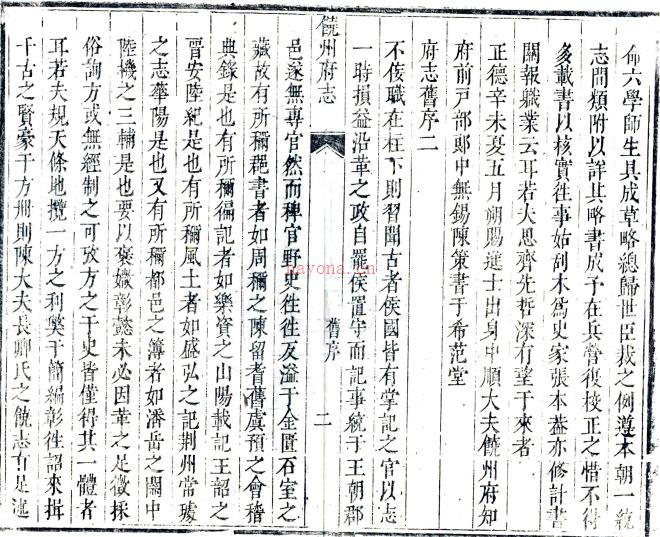 命六學師生具成草略總歸世臣裁之例遵本朝一統
志問類附以詳其略書成予在兵營後校正之惜不得
多載書以核實往事姑刻木爲史家張本葢亦修計書
關報職業云耳若夫思齊先哲深有望于來者
正德辛未夏五月朔賜進士出身中順大夫饒州府知
府前戸部郎中無錫陳策書于希范堂
府志舊序二
不佞職在柱下則習聞古者侯國皆有掌記之官以志
一時損益沿革之政自罷侯置守而記事統于王朝郡
饒州府志
舊序
二
邑遂無專官然而稗官野史往往反溢于金匱石室之
藏故有所稱耆書者如周稱之陳留耆舊虞預之會稽
典錄是也有所稱徧記者如樂資之山陽載記王韶之
晉安陸紀是也有所稱風土者如盛弘之記荆州常璩
之志華陽是也又有所稱都邑之簿者如潘岳之關中
陸機之三輔是也要以褒媺彰懲未必因革之足徵採
俗詢方或無經制之可攷方之于史皆僅得其一體者
耳若夫規天條地攬一方之利獘于簡編彰徃詔來揖
千古之賢豪于方冊則陳大夫長卿氏之饒志有足述
nayona.cn